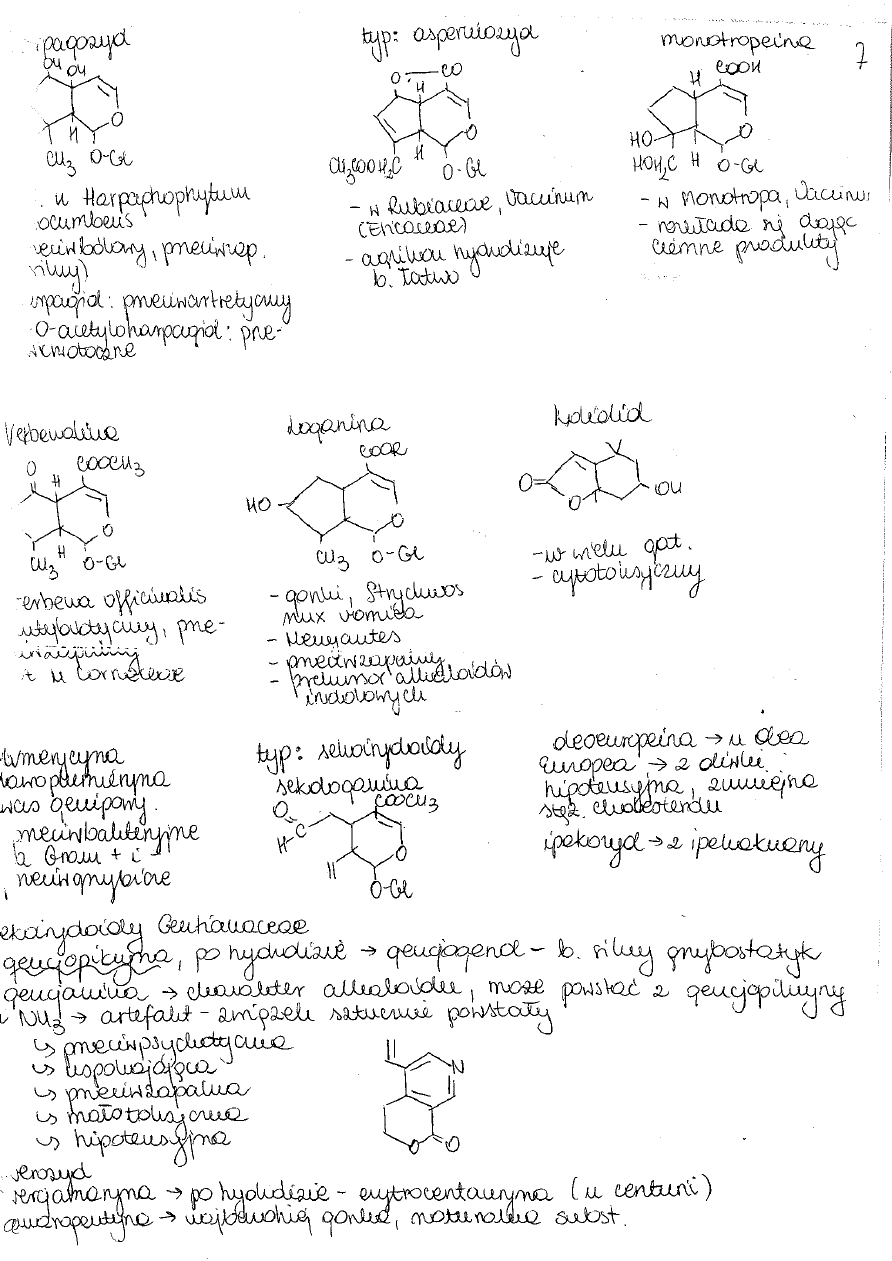 pagozyd
OH OH
O
H
CH3 O-Gl
w Harpagophytum
ocumbens
zeciwbólowy, przeciwzap.
silny)
rpagid: przeciwartretyczny
O-acetyloharpagid: prze-
typ: asperulozyd
O CO
H
O
CH3COOH2C H O-Gl
- w Rubiaceae, Vaccinum
(Ericaceae)
- aglikon hydrolizuje
b. łatwo
monotropeina
7
H COOH
O
HO
HOH2C H O-Gl
- w Monotropa, Vaccinu
- rozkłada się dając
ciemne produkty
Verbenalina
O H COOCH3
O
CH3 H O-Gl
erbena officinalis
prze-
w Cornaceae
Loganina
COOR
HO
O
CH3 O-Gl
- gorzki, Strychnos
nux vomica
- Menyantes
- przeciwzapalny
- prekursor alkaloidów
indolowych
loliolid
O O OH
- w wielu gat.
- cytotoksyczny
umerycyna
zowoplumieryna
kwas genipowy
przeciwbakteryjne
Gram + i -
przeciwgrzybicze
typ: sekoirydoidy
sekologanina
O COOCH3
H-C
O
O-Gl
oleoeuropeina → w Olea
Europea → z oliwki
hipotensyjna, zmniejsza
stęż. cholesterolu
ipekozyd → z ipekakuany
ekoirydoidy Gentianaceae
gencjopikryna, po hydrolizie → gencjogenol - b. silny grzybostatyk
gencjanina → charakter alkaloidu, może powstać z gencjopikryny
z NH3 → artefakt - związek sztucznie powstały
↳ przeciwpsychotyczna
↳ uspokajająca
↳ przeciwzapalna
↳ małotoksyczna
↳ hipotensyjna
N
O O
werozyd
sercjamaryna → po hydrolizie - erytrocentauryna (w centurii)
amaropentyna → najbardziej gorzka, naturalna subst.